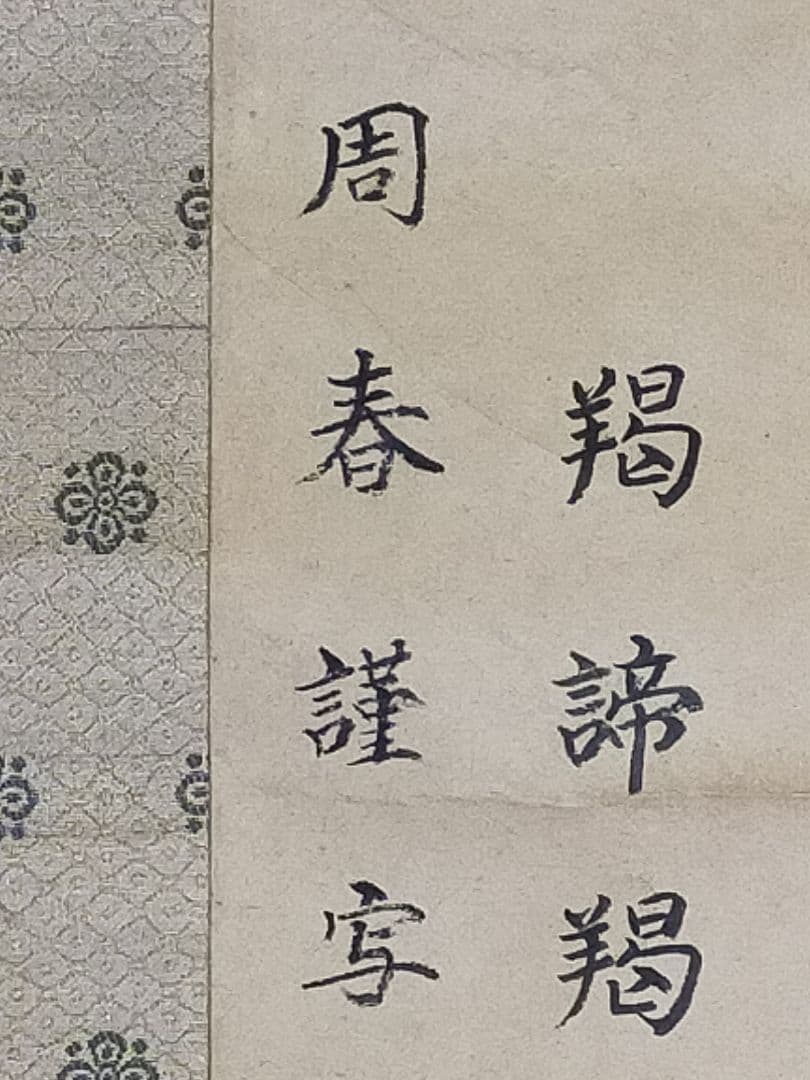 羯諦羯
周春謹写